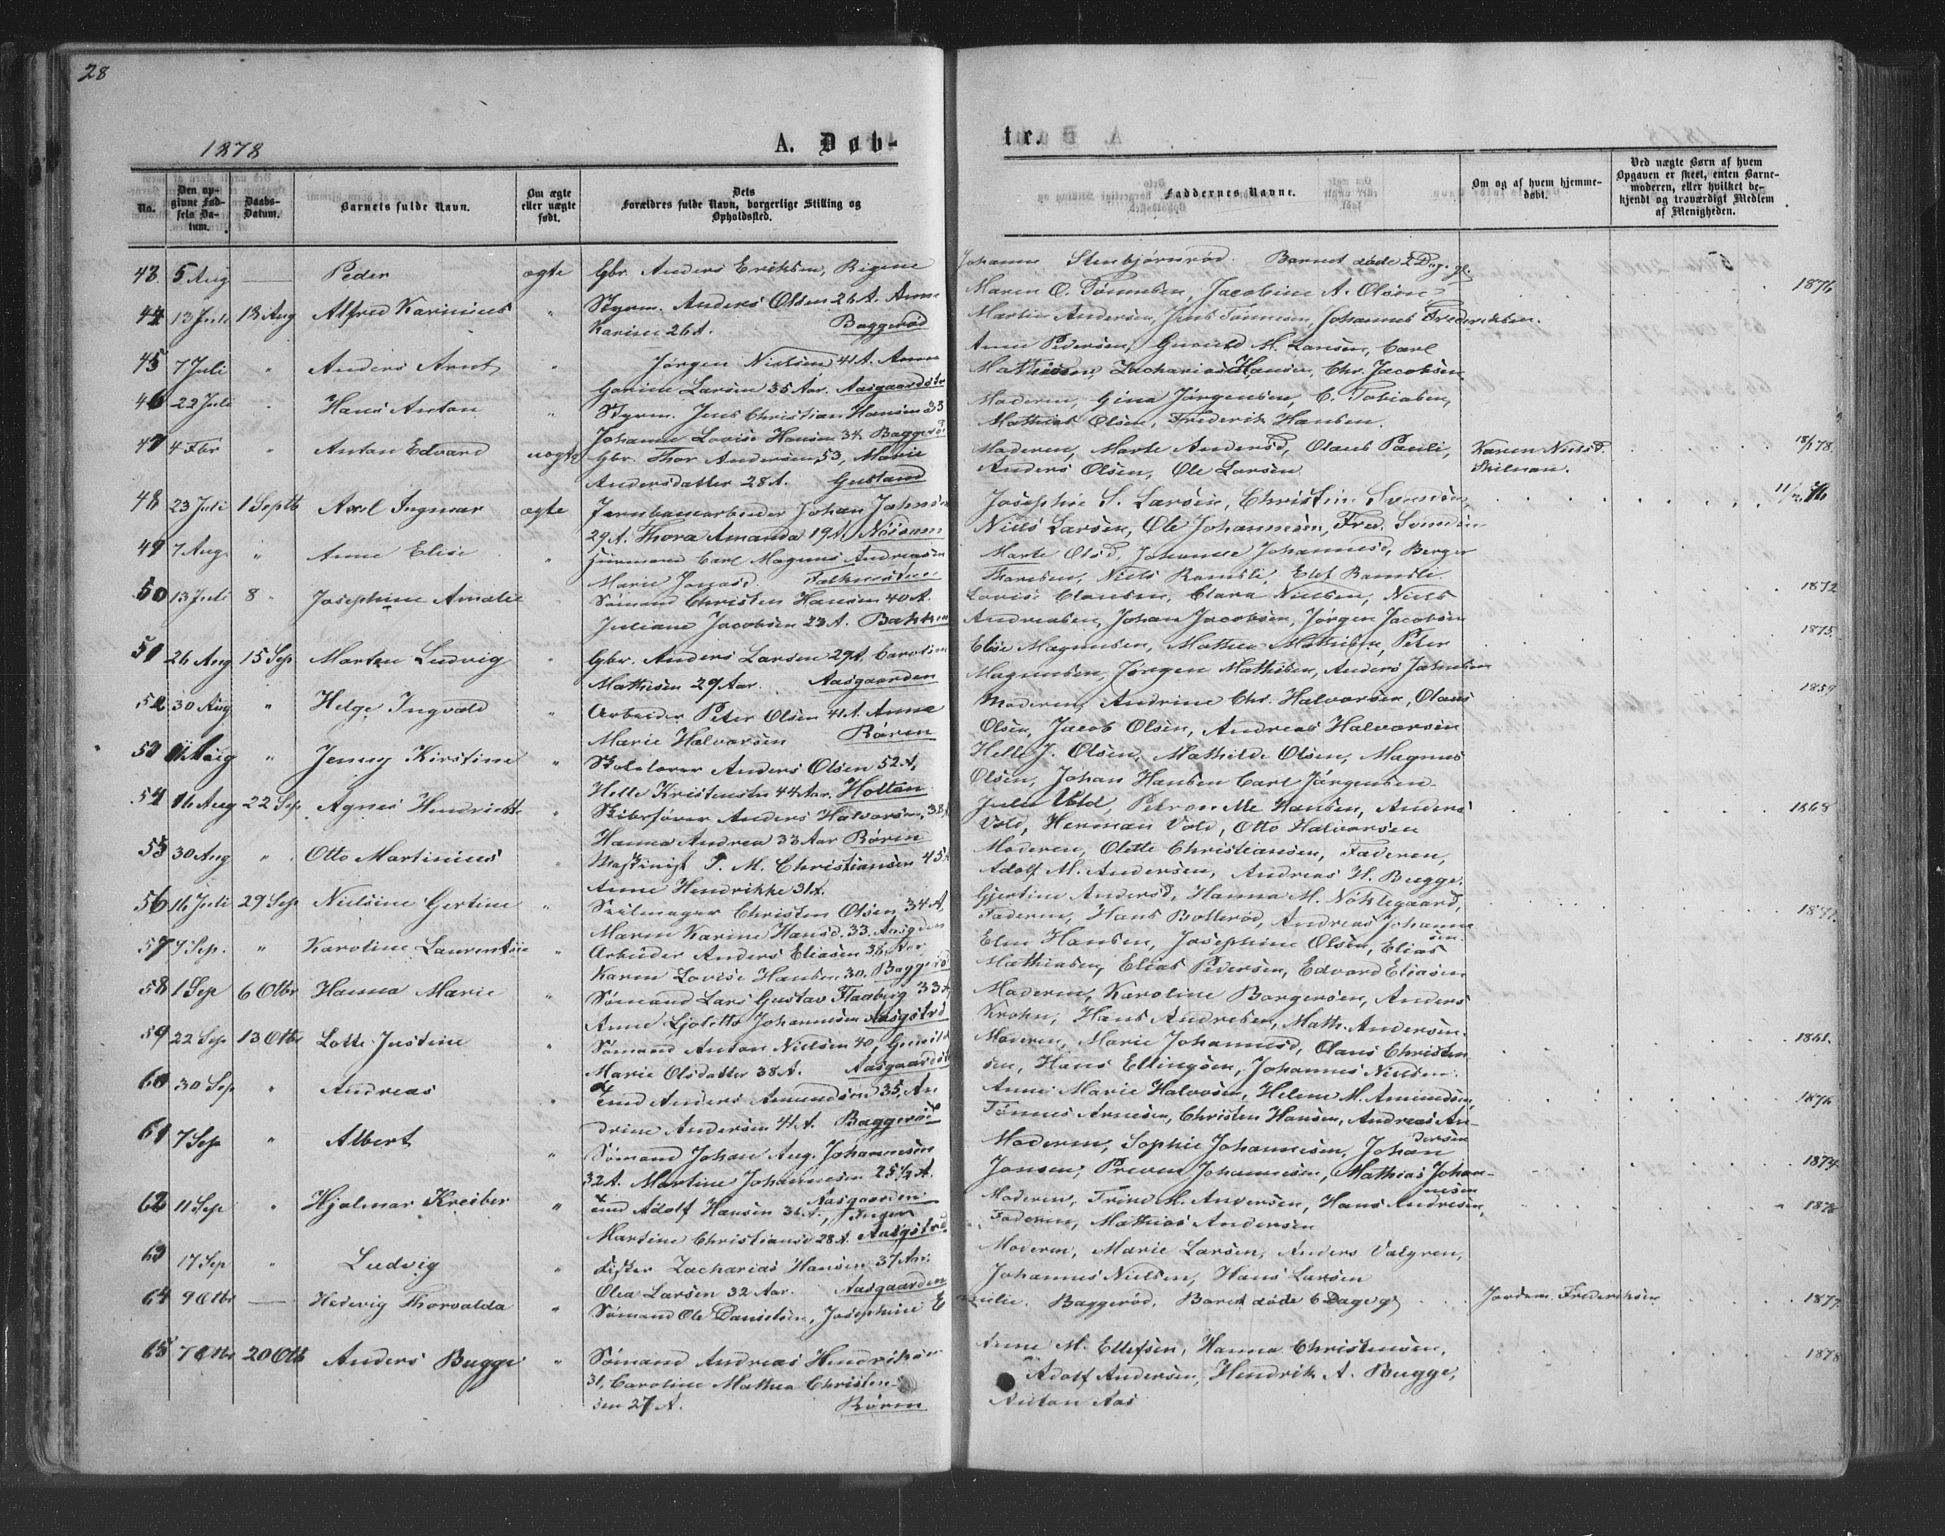 28
1878
A. Døb-
No.
Den op-
givne Fød-
sels Da-
tum.
Daabs-
Datum.
Barnets fulde Navn.
Om ægte
eller uægte
født.
Dets
Forældres fulde Navn, borgerlige Stilling og
Opholdsted.
43. 5 Aug — Peder ægte Gbr. Anders Eriksen, Rigene
44 13 Juli 18 Aug Alfred Karinius " Styrm. Anders Olsen 26 A. Anne
Karine 26 A. Baggerød
45 7 Juli " Anders Arnt " Jørgen Nielsen 41 A. Anne
Gorine Larsen 35 Aar. Aasgaardstr
46 22 Juli " Hans Anton " Styrm. Jens Christian Hansen 33
Johanne Lovise Hansen 34. Baggerød
47 4 Fbr " Anton Edvard uægte Gbr. Thor Andersen, 53, Marie
Andersdatter 28 A. Gustand
48 23 Juli 1 Septb Axel Ingmar ægte Jernbanearbeider Johan Johnsen
29 A. Thora Amanda 19 A.
49 7 Aug. " Anne Elise " Carl Magnus Andreasen
Marie
50 13 Juli 8 " Josephine Amalie Sømand Christen Hansen 40 A.
Juliane Jacobsen 23 A. Bakken
51 26 Aug 15 Sep Morten Ludvig " Gbr. Anders Larsen 29 A. Caroline
Mathisen 29 Aar. Aasgaarden
52 30 Aug " Helge Ingvald " Arbeider Peter Olsen 41 A. Anne
Marie Halvorsen Røren
53 " Jenny Kirstine " Skolelærer Anders Olsen 52 A.
Helle Kristensen 44 Aar. Holtan
54 16 Aug 22 Sep Agnes Hendriette " Skibsfører Anders Halvorsen, 38
Hanna Andrea 33 Aar Røren
55 30 Aug " Otto Martinius " Maskinist T. M. Christiansen 45 A
Anne Hendrikke 31 A.
56 16 Juli 29 Sep Nielsine Gertine " Seilmager Christen Olsen 34 A,
Maren Karine Hansd. 33. Aasgden
57 9 Sep. " Karoline Laurentze " Arbeider Anders Eliasen 38 Aar
Karen Lovise Hansen 30. Baggerød
58 1 Sep 6 Otbr Hanna Marie " Sømand Lars Gustav Flaaberg 33 A
Anne Johannesen Aasgstrd
59 22 Sep 13 Otbr Lotte Justine " Sømand Anton Nielsen 40, Gunild
Marie Olsdatter 38 A. Aasgaardstr
60 30 Sep " Andreas " Anders Amundsen 35, An
drine Andersen 41 A. Baggerød
61 7 Sep " Albert " Sømand Johan Aug. Johannesen
32 A. Martine Johannesen 25 1/2 A.
Aasgaarden
62 11 Sep " Hjalmar Kreiber " Adolf Hansen 31 A., Inger
Martine Christiansd 28 A. Aasgstrd
63 17 Sep " Ludvig " Fisker Zacharias Hansen 37 Aar,
Olea Larsen 32 Aar. Aasgaarden
64 9 Otbr — Hedvig Thorvalda " Sømand Ole Danielsen, Josephine E
65 7 Otbr 20 Otb Anders Bugge " Sømand Andreas Hendriksen
31, Caroline Mathea Christen-
sen 27 A. Røren
te.
Faddernes Navne.
Om og af hvem hjemme-
døbt.
Ved uægte Børn af hvem
Opgaven er skeet, enten Barne-
moderen, eller hvilket be-
kjendt og troværdigt Medlem
af Menigheden.
Johanne Stenbjørnrød. Barnet døde 2 Dag. gl.
Maren O. Tønnesen, Jacobine A. Olsen 1876
Martin Andersen, Jens Tønnesen, Johannes Frederiksen.
Anne Pedersen, Gunild M. Larsen, Carl
Mathisen, Zacharias Hansen, Chr. Jacobsen
Moderen, Gina Jørgensen, C. Tobiasen,
Mathias Olsen, Frederik Hansen.
Moderen, Marte Andersd, Olaus Pauli, Karen Nielsd. 18/1 78.
Anders Olsen, Ole Larsen
Josephine S. Larsen, Christine Svendsen,
Niels Larsen, Ole Johannesen, Fred. Svendsen
Marte Olsd, Johanne Johannesd, Berger
Thoresen, Niels Ramsli, Elef Ramsli.
Lovise Clausen, Clara Nielsen, Niels 1872
Andreasen, Johan Jacobsen, Jørgen Jacobsen
Elise Magnusen, Mathea Mathisen, Peter 1875.
Magnusen, Jørgen Mathisen, Anders Johnsen
Moderen, Andrine Chr. Halvorsen, Olaus 1859
Olsen, Jacob Olsen, Andreas Halvorsen
Helle J. Olsen, Mathilde Olsen, Magnus
Olsen, Johan Hansen Carl Jørgensen
Julie Vold, Petronelle Hansen, Anders 1868
Vold, Herman Vold, Otto Halvorsen
Moderen, Olette Christiansen, Faderen,
Adolf M. Andersen, Andreas H. Bugge.
Gjertine Andersd, Hanna M. Nøklegaard,
Faderen, Hans Bollerød, Andreas Johanne
sen.
Elen Hansen, Josephine Olsen, Elias
Mathiasen, Elias Pedersen, Edvard Eliasen
Moderen, Karoline Borgersen, Anders
Krohn, Hans Andresen, Math. Andersen.
Moderen, Marie Johannesd, Olaus Christen 1861.
sen, Hans Ellingsen, Johannes Nielsen.
Anne Marie Halvorsen, Helene M. Amundsen, 1876
Tønnes Arnesen, Christen Hansen, Andreas An-
dersen
Moderen, Sophie Johannesen, Johan
Jonsen, Preven Johannesen, Mathias Johan- 1874
nesen
Moderen, Trine M. Andersen, Hans Andresen, 1876
Faderen, Mathias Andersen
Moderen, Marie Larsen, Anders Valgren,
Johannes Nielsen, Hans Larsen
Baggerød. Barnet døde 6 Dage gl Jordem. Frederiksen 1877.
Anne M. Ellefsen, Hanna Christensen, 1878
Adolf Andersen, Hendrik A. Bugge,
Anton Aas